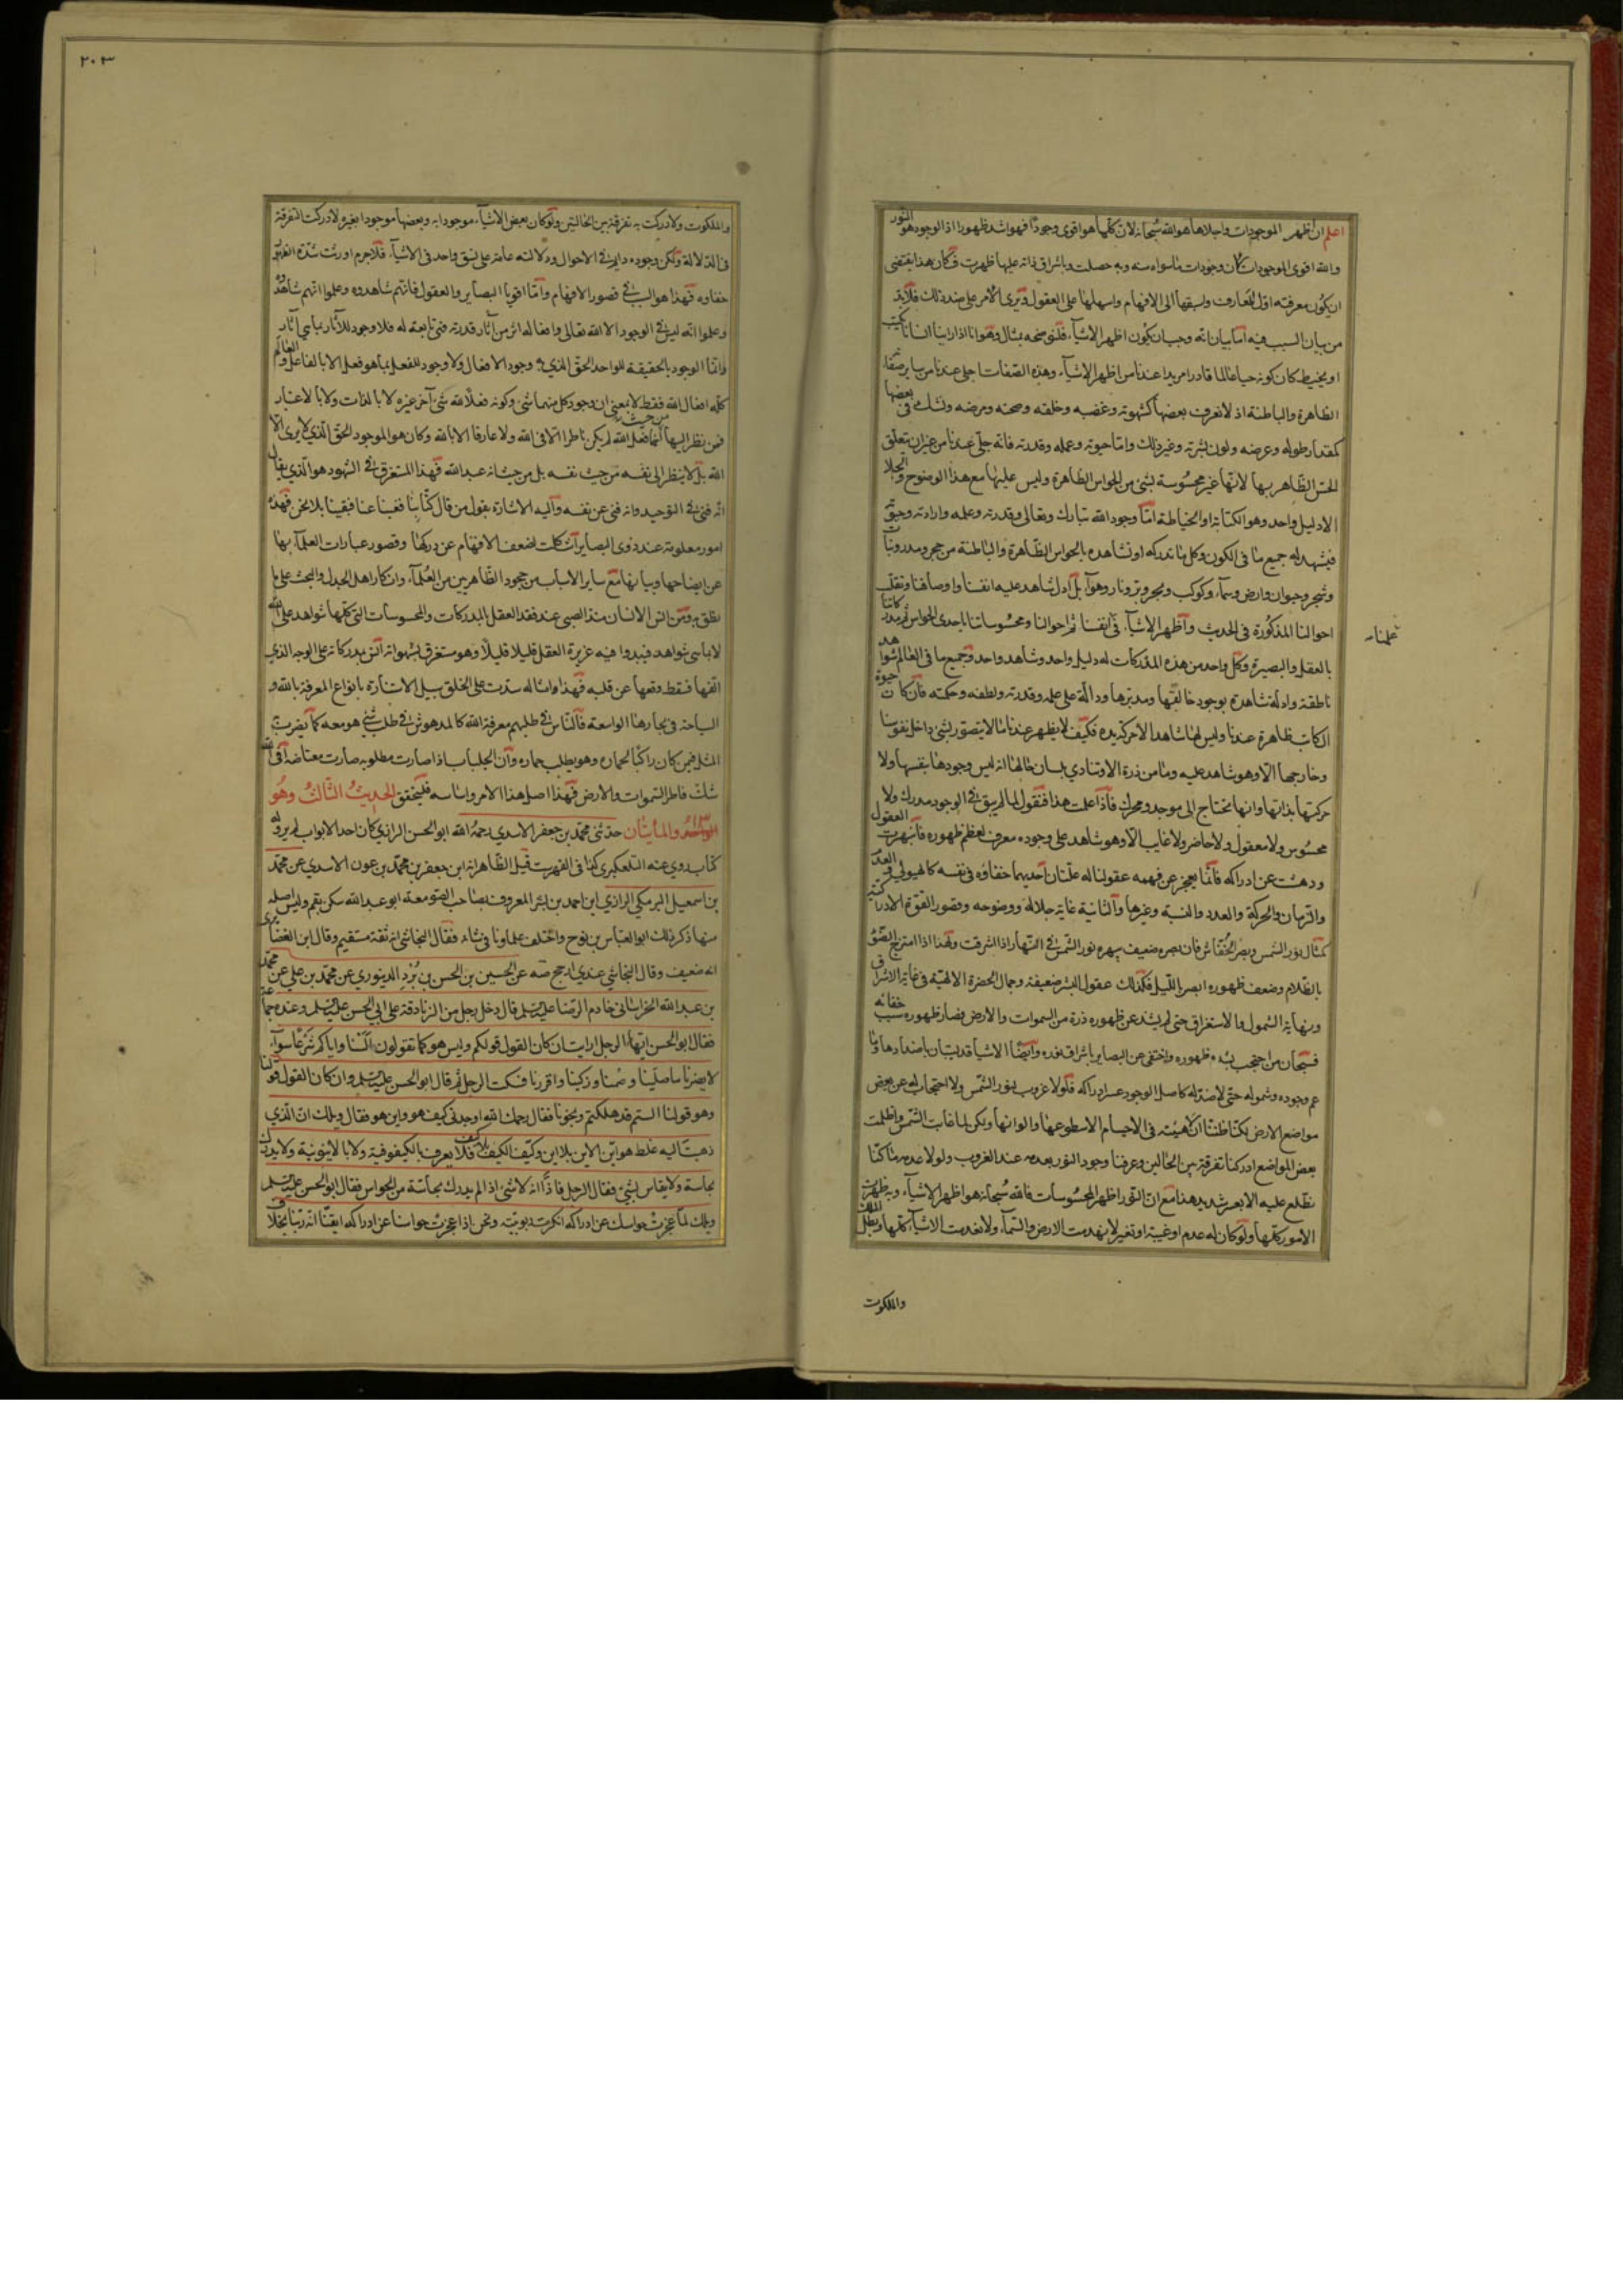 اعلم ان اظهر الموجودات واجلاها هو الله سبحانه لان كلها هو اقوى وجودًا فهو اشد ظهورا اذ الوجود هو النور
والله اقوى الموجودات كان وجودات ما سواه منه وبه حصلت وباشراق ذاته عليها ظهرت فكان هذا يقتضى
ان يكون معرفته اول المعارف واسبقها الى الافهام واسهلها على العقول ونرى الامر على ضد ذلك فلابد
من بيان السبب فيه اما بيان انه وجب ان يكون اظهر الاشياء فلنوضحه بمثال وهو انا اذا راينا انسانا يكتب
او يخيط كان كونه حيا عالما قادرا مريدا عندنا من اظهر الاشياء وهذه الصفات اجلى عندنا من ساير صفاته
الظاهرة والباطنة اذ لا نعرف بعضها كشهوته وغضبه وخلقه وصحته ومرضه ونشك فى بعضها
كمقدار طوله وعرضه ولون بشرته وغير ذلك واما حيوته وعمله وقدرته فانه جلى عندنا من غير ان يتعلق
الحس الظاهر بها لانها غير محسوسة بشئ من الحواس الظاهرة وليس عليها مع هذا الوضوح والجلا
الا دليل واحد وهو الكتابة او الخياطة اما وجود الله تبارك وتعالى وقدرته وعلمه وارادته وحيوته
فيشهد له جميع ما فى الكون وكل ما ندركه او نشاهده بالحواس الظاهرة والباطنة من حجر ومدر ونبات
وشجر وحيوان وارض وسماء وكوكب وبحر وبر ونار وهواء بل ادل شاهد عليه انفسنا واوصافنا وتقلب
احوالنا المذكورة فى الحديث واظهر الاشياء فى انفسنا ثم احوالنا ومحسوساتنا باحدى الحواس ثم مدركاتنا
علمنا
بالعقل والبصيرة وكل واحد من هذه المدركات له دليل واحد وشاهد واحد وجميع ما فى العالم شواهد
ناطقة وادلة شاهدة بوجود خالقها ومدبرها ودالة على علمه وقدرته ولطفه وحكمته فان كان حيوة
الكاتب ظاهرة عندنا وليس لها شاهد الا حركة يده فكيف لا يظهر عندنا ما لا يتصور شئ داخل نفوسنا
وخارجها الا وهو شاهد عليه وما من ذرة الا وتنادى بلسان حالها انه ليس وجودها بنفسها ولا
حركتها بذاتها وانها تحتاج الى موجد ومحرك فاذا علمت هذا فنقول لما لم يبق فى الوجود مدرك ولا
محسوس ولا معقول ولا حاضر ولا غايب الا وهو شاهد على وجوده معرف لعظم ظهوره فانبهرت العقول
ودهشت عن ادراكه فانما يعجز عن فهمه عقولنا له علتان احديهما خفاؤه فى نفسه كالهيولى والعدد
والزمان والحركة والعدد والنسبة وغيرها والثانية غاية جلاله ووضوحه وقصور القوة الادراكية
كمثال نور الشمس وبصر الخفاش فان بصره ضعيف يبهره نور الشمس فى النهار اذا اشرقت ولهذا اذا امتزج الضوء
بالظلام وضعف ظهوره ابصر بالليل فكذلك عقول البشر ضعيفة وجمال الحضرة الالهية فى غاية الاشراق
ونهاية الشمول والاستغراق حتى لم يشذ عن ظهوره ذرة من السموات والارض فصار ظهوره سبب خفائه
فسبحان من احتجب بشدة ظهوره واختفى عن البصاير باشراق نوره وايضا الاشياء قد يتبان باضدادها وما
عم وجوده وشموله حتى لا ضد له كاصل الوجود عسر ادراكه فلولا غروب بنور الشمس ولا احتجاب له عن بعض
مواضع الارض لكنا ظننا ان لا هيئة فى الاجسام الا سطوعها والوانها ولكن لما غابت الشمس واظلمت
بعض المواضع ادركنا تفرقة بين الحالين وعرفنا وجود النور بعدمه عند الغروب ولولا عدمه ما كنا
نطلع عليه الا بعسر شديد هذا مع ان النور اظهر المحسوسات فالله سبحانه هو اظهر الاشياء وبه ظهرت
الامور كلها ولو كان له عدم او غيبة او تغير لانهدمت الارض والسماء ولانعدمت الاشياء كلها وبطل الملك
والملكوت
٢٠٣
والملكوت ولادركت به تفرقة بين الحالتين ولو كان بعض الاشياء موجودا به وبعضها موجودا بغيره لادركت التفرقة
فى الدلالة ولكن وجوده دايم فى الاحوال ودلالته عامة على نسق واحد فى الاشياء فلا جرم اورثت شدة الظهور
خفاوه فهذا هو السبب فى قصور الافهام واما اقويا البصاير والعقول فانهم شاهدوه وعلموا انهم شاهدوه
وعلموا انه ليس فى الوجود الا الله تعالى وافعاله اثر من آثار قدرته فهى تابعة له فلا وجود للآثار بما هى آثار
وانما الوجود بالحقيقة للواحد الحق الذى به وجود الافعال ولا وجود للفعل بما هو فعل الا بالفاعل والعالم
كله افعال الله فقط لا بمعنى ان وجود كل منهما شئ وكونه فعلا لله شئ آخر غيره لا بالذات ولا بالاعتبار
فمن نظر اليها من حيث انها فعل الله لم يكن ناظرا الا فى الله ولا عارفا الا بالله وكان هو الموجود الحق الذى لا يرى الا
الله بل لا ينظر الى نفسه من حيث نفسه بل من حيث انه عبد الله فهذا المستغرق فى الشهود هو الذى يقال
انه فنى فى التوحيد وانه فنى عن نفسه واليه الاشارة بقول من قال كنا بنا فغبنا عنا فبقينا بلا نحن فهذه
امور معلومة عند ذوى البصاير اشكلت لضعف الافهام عن دركها وقصور عبارات العلماء بها
عن ايضاحها وبيانها مع ساير الاسباب من جحود الظاهريين من العلماء وانكار اهل الجدل والبحث على ما
نطق به ومن انس الانسان منذ الصبى عند فقد العقل بالمدركات والمحسوسات التى كلها شواهد على الله
لا باسى شواهد فيبدوا فيه غريزة العقل قليلا قليلا وهو مستغرق بشهواته انس بمدركاته على الوجه الذى
الفها فسقط وقعها عن قلبه فهذا وامثاله سدت على الخلق سبيل الاستنارة بانواع المعرفة بالله و
السباحة فى بحارها الواسعة فالناس فى طلبهم معرفة الله كالمدهوش فى طلب شئ هو معه كما يضرب
المثل فيمن كان راكبا لحماره وهو يطلب حماره وان الجلباب اذا صارت مطلوبه صارت معتاضة أفى الله
شك فاطر السموات والارض فهذا اصل هذا الامر واساسه فليتحقق الحديث الثالث وهو
الواحد والمأيتان حدثنى محمد بن جعفر الاسدى رحمه الله ابو الحسن الرازى كان احد الابواب لم يرو له
كتاب روى عنه التلعكبرى كذا فى الفهرست قيل الظاهر انه ابن جعفر بن محمد بن عون الاسدى عن محمد
بن اسمعيل البرمكى الرازى ابن احمد بن بشر المعروف بصاحب الصومعة ابو عبد الله سكن بقم وليس اصله
منها ذكر ذلك ابو العباس بن نوح واختلف علماونا فى شانه فقال النجاشى انه ثقة مستقيم وقال ابن الغضايرى
انه ضعيف وقال النجاشى عندى ارجح صه عن الحسين بن الحسن بن بُرْدِ الدينورى عن محمد بن على عن محمد
بن عبد الله الخراسانى خادم الرضا عليه السلم قال دخل رجل من الزنادقة على ابى الحسن عليه السلم وعنده جماعة
فقال ابو الحسن ايها الرجل ارايت ان كان القول قولكم وليس هو كما تقولون السنا واياكم شرعا سواء
لا يضرنا ما صلينا وصمنا وزكينا واقررنا فسكت الرجل ثم قال ابو الحسن عليه السلم وان كان القول قولنا
وهو قولنا الستم قد هلكتم ونجونا فقال رحمك الله اوجدنى كيف هو واين هو فقال ويلك ان الذى
ذهبت اليه غلط هو اين الاين بلا اين وكيف الكيف بلا كيف فلا يعرف بالكيفوفية ولا بالاينونية ولا يدرك
بحاسة ولا يقاس بشئ فقال الرجل فاذا انه لا شئ اذ الم يدرك بحاسة من الحواس فقال ابو الحسن عليه السلم
ويلك لما عجزت حواسك عن ادراكه انكرت ربوبيته ونحن اذا عجزت حواسنا عن ادراكه ايقنا انه ربنا بخلاف